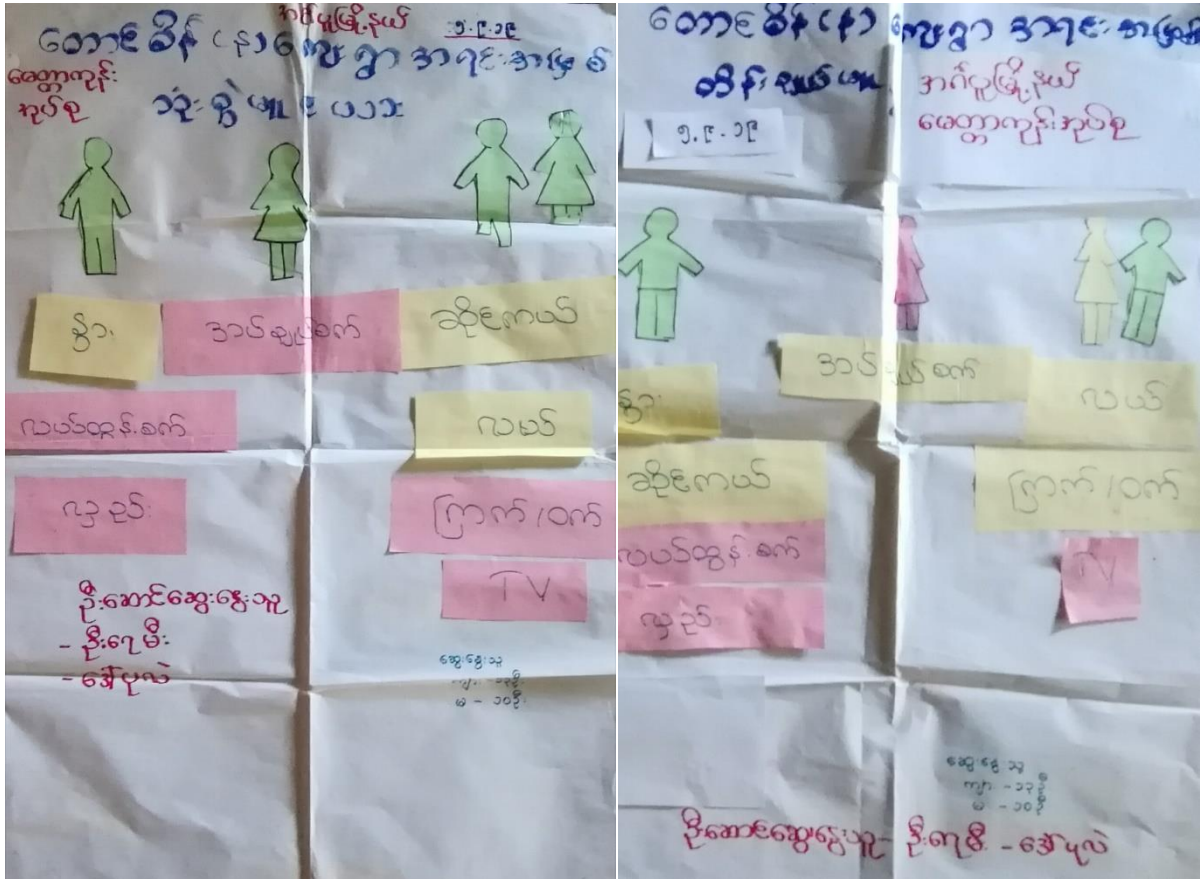 အင်္ဂပူမြို့နယ်
၅.၉.၁၉
တောင စိန် (န) ကျေးရွာ အရင်းအမြစ်
မေတ္တာကုန်း
အုပ်စု
သုံးစွဲမှု ပုံသ
နွား
အပ်ချုပ်စက်
ဆိုင်ကယ်
လယ်ထွန်စက်
လယ်
လှည်း
ကြက်/ဝက်
TV
ဦးဆောင်ဆွေးနွေးသူ
- ဦးရေမီး
- ဒေါ်ပုလဲ
ဆွေးနွေးသူ
ကျား - ၁၃ဦး
မ - ၁၀ဦး
တောင စိန် (န) ကျေးရွာ အရင်းအမြစ်
ထိန်းချုပ်မှု
အင်္ဂပူမြို့နယ်
မေတ္တာကုန်းအုပ်စု
၅.၉.၁၉
အပ်ချုပ်စက်
နွား
လယ်
ဆိုင်ကယ်
ကြက်/ဝက်
လယ်ထွန်စက်
TV
လှည်း
ဆွေးနွေးသူ
ကျား - ၁၃ဦး
မ - ၁၀ဦး
ဦးဆောင်ဆွေးနွေးသူ - ဦးရေမီး - ဒေါ်ပုလဲ